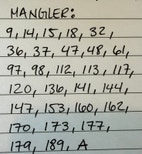 MANGLER:
9, 14, 15, 18, 32,
36, 37, 47, 48, 61,
97, 98, 112, 113, 117,
120, 136, 141, 144,
147, 153, 160, 162,
170, 173, 177,
179, 189, A